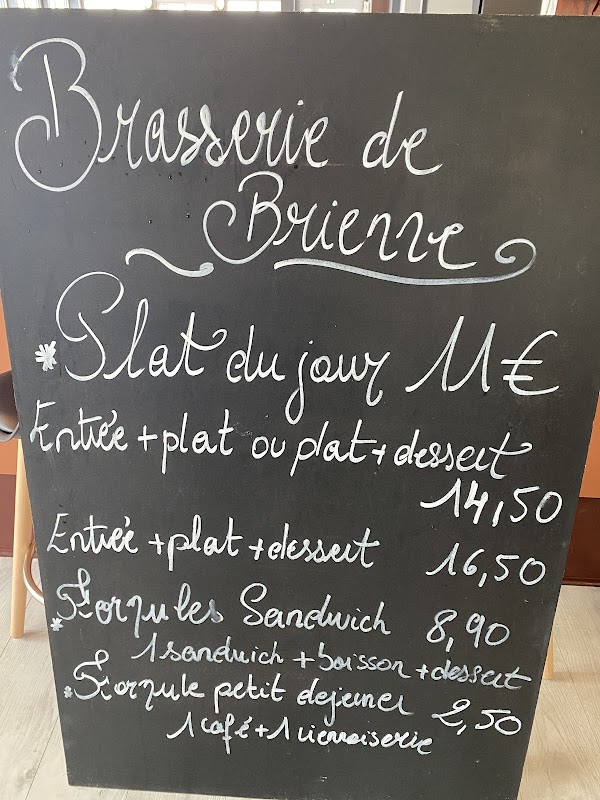 Brasserie de
Brienne
* Plat du jour 11€
Entrée + plat ou plat + dessert
14,50
Entrée + plat + dessert 16,50
* Formules Sandwich 8,90
1 sandwich + boisson + dessert
* Formule petit dejeuner 2,50
1 café + 1 viennoiserie